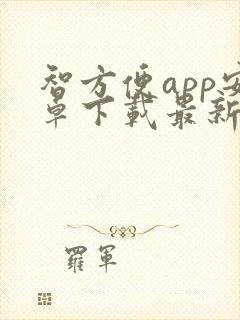 智方便app安
卓下载最新
羅軍